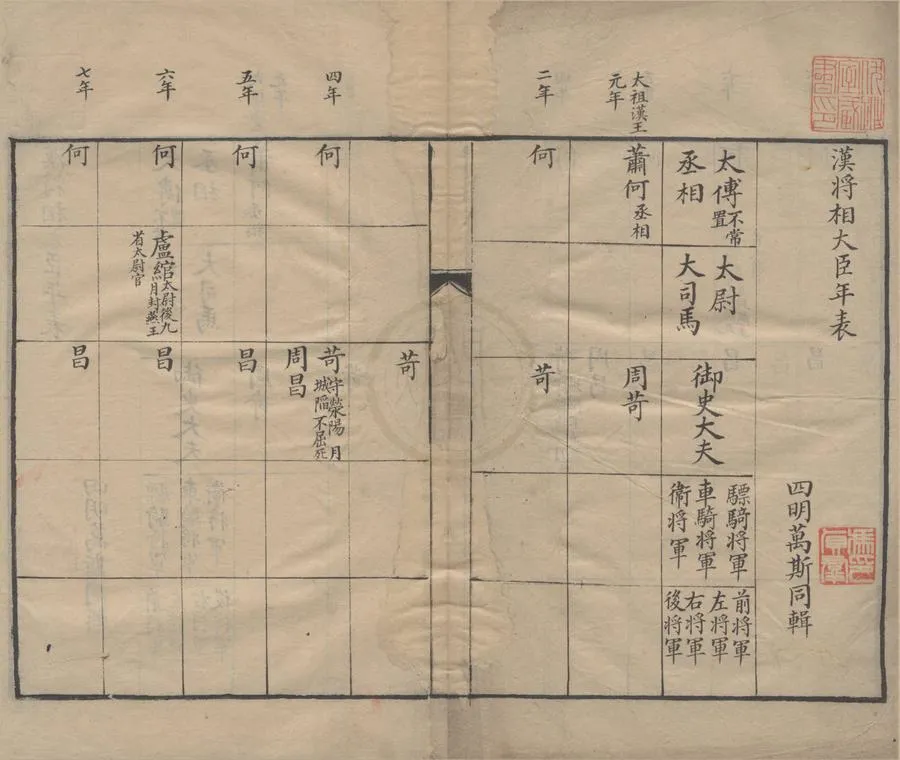 漢將相大臣年表
四明萬斯同輯
太傅不常置
丞相
太尉
大司馬
御史大夫
驃騎將軍
車騎將軍
衞將軍
前將軍
左將軍
右將軍
後將軍
太祖漢王
元年
蕭何丞相
周苛
二年
何
苛
苛
四年
何
苛守滎陽月城陷不屈死
周昌
五年
何
昌
六年
何
盧綰太尉後九月封燕王
省太尉官
昌
七年
何
昌